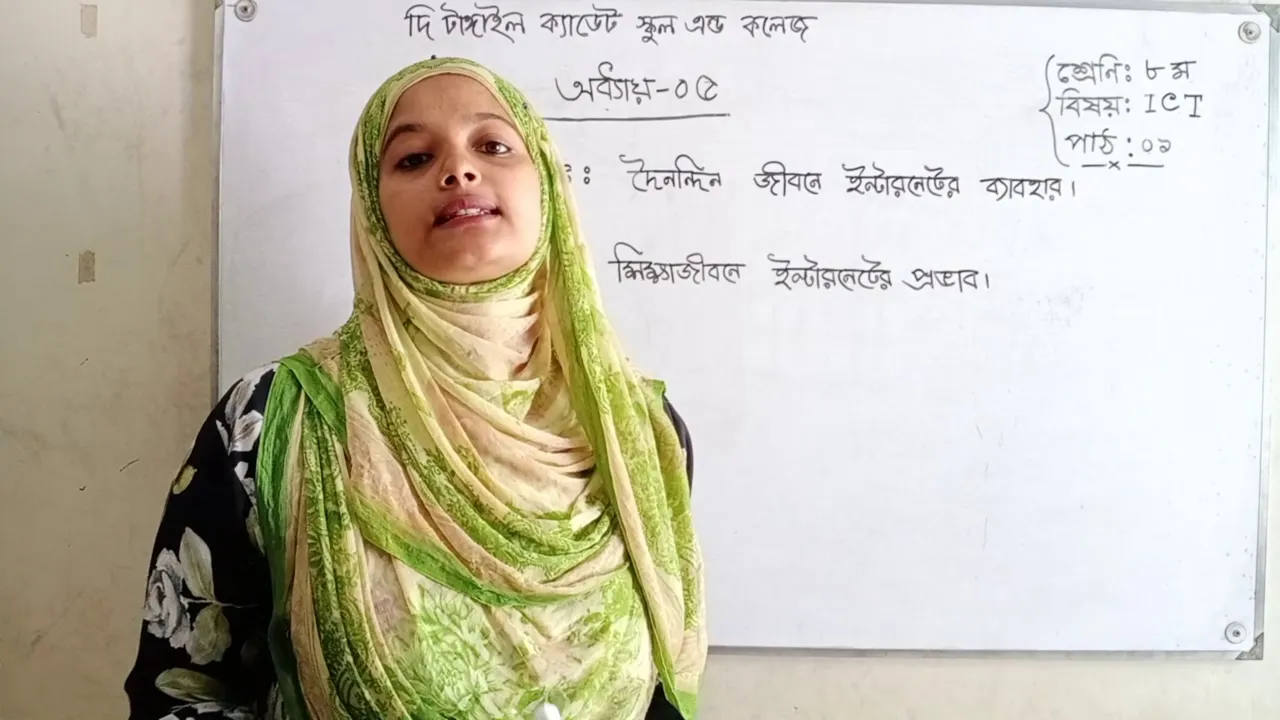 দি টাঙ্গাইল ক্যাডেট স্কুল এন্ড কলেজ
অধ্যায়-০৫
শ্রেনি: ৮ম
বিষয়: ICT
পাঠ: ০১
দৈনন্দিন জীবনে ইন্টারনেটের ব্যাবহার।
শিক্ষাজীবনে ইন্টারনেটের প্রভাব।